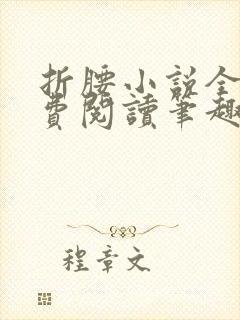 折腰小説全
費閱讀筆趣
程章文